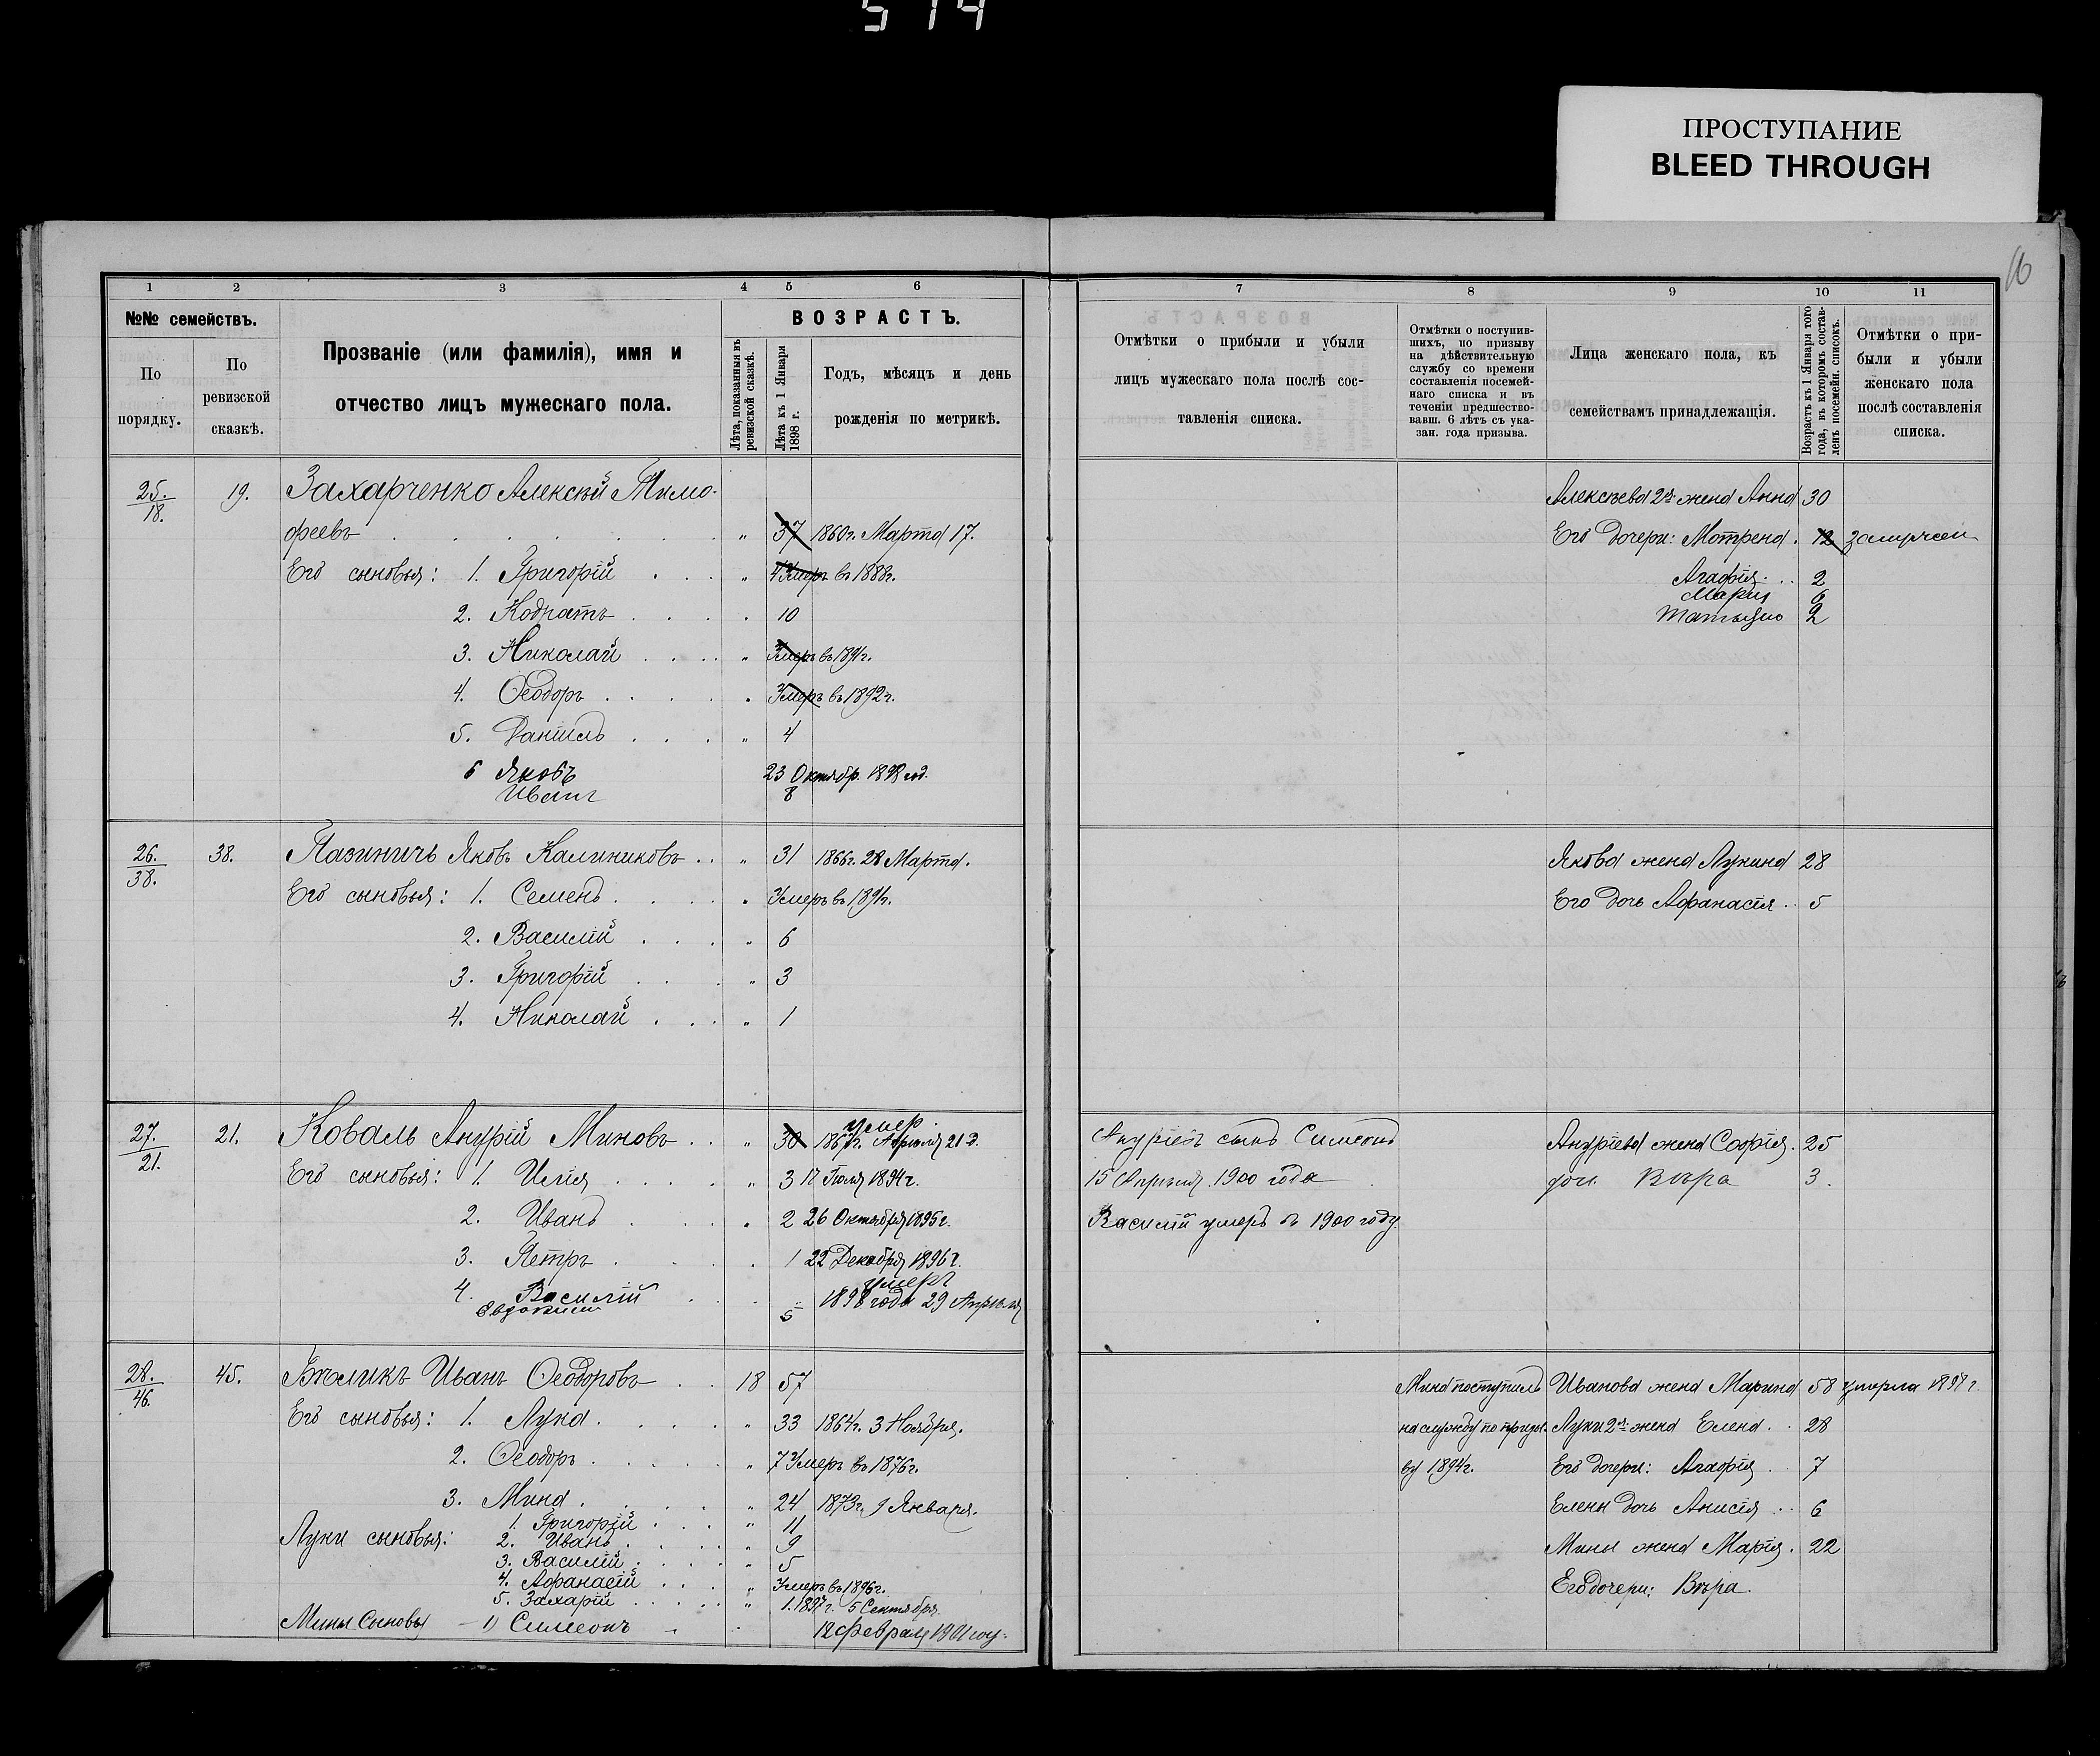 514
ПРОСТУПАНИЕ
BLEED THROUGH
16
1 2 3 4 5 6
№№ семействъ.
По порядку.
По ревизской сказкѣ.
Прозваніе (или фамилія), имя и
отчество лицъ мужескаго пола.
ВОЗРАСТЪ.
Лѣта, показанныя въ ревизской сказкѣ.
Лѣта къ 1 Января 1898 г.
Годъ, мѣсяцъ и день
рожденія по метрикѣ.
25. 18. 19. Захарченко Алексѣй Тимо-
феевъ " 37 1860г. Марта 17.
Его сыновья: 1. Григорій " Умеръ въ 1888г.
2. Кодратъ " 10
3. Николай " Умеръ въ 1891г.
4. Ѳеодоръ " Умеръ въ 1892г.
5. Даніилъ " 4
6 Яковъ 23 Октябр. 1898 год.
Иванъ 8
26. 38. 38. Пазиничъ Яковъ Калиниковъ " 31 1866г. 28 Марта.
Его сыновья: 1. Семенъ " Умеръ въ 1891г.
2. Василій " 6
3. Григорій " 3
4. Николай " 1
умер
27. 21. 21. Коваль Анурій Миновъ " 30 1867г. Апрѣля 21 д.
Его сыновья: 1. Илія " 3 17 Іюля 1894г.
2. Иванъ " 2 26 Октября 1895г.
3. Петръ 1 22 Декабря 1896г.
умеръ
4. Василій 1898 года 29 Апрѣля
Евдоким 5
28. 46. 45. Бѣликъ Иванъ Ѳеодоровъ 18 57
Его сыновья: 1. Лука " 33 1864г. 3 Ноября.
2. Ѳеодоръ " 7 Умеръ въ 1876г.
3. Мина " 24 1873г. 9 Января.
Луки сыновья: 1. Григорій " 11
2. Иванъ " 9
3. Василій " 5
4. Афанасій " Умеръ въ 1896г.
5. Захарій " 1. 1897г. 5 Сентября.
Мины Сыновья 1) Симеонъ 12 февраля 1901 году.
7 8 9 10 11
Отмѣтки о прибыли и убыли
лицъ мужескаго пола послѣ сос-
тавленія списка.
Отмѣтки о поступив-
шихъ, по призыву
на дѣйствительную
службу со времени
составленія посемей-
наго списка и въ
теченіи предшество-
вавш. 6 лѣтъ съ ука-
зан. года призыва.
Лица женскаго пола, къ
семействамъ принадлежащія.
Возрастъ къ 1 Января того
года, въ которомъ состав-
ленъ посемейн. списокъ.
Отмѣтки о при-
были и убыли
женскаго пола
послѣ составленія
списка.
Алексѣева 2я жена Анна 30
Его дочери: Мотрена. 12 замужем
Агафія 2
Мария 6
Татьяна 2
Якова жена Лукина 28
Его дочь Афанасія 5
Ануріевъ сынъ Симеонъ
15 Апрѣля 1900 года
Василій умеръ въ 1900 году.
Ануріева жена Софія. 25
доч. Вѣра 3.
Мина поступилъ
на службу по призы.
въ 1894г.
Иванова жена Марина 58 умерла 1898 г.
Луки 2я жена Елена 28
Его дочери: Агафія 7
Елены дочь Анисія 6
Мины жена Марія. 22
Его дочери: Вѣра.